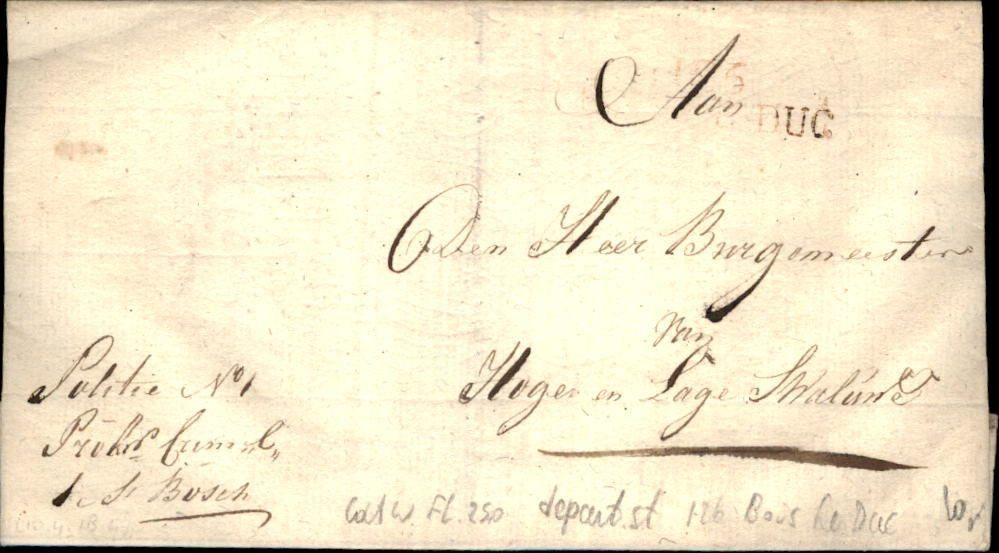 Aan
DUC
Den Heer Burgemeester
van
Hoge en Lage Swaluwe
Politie No 1
Prokr Crimel
's Bosch
Fl. 250 depart.st 126 Bois Le Duc